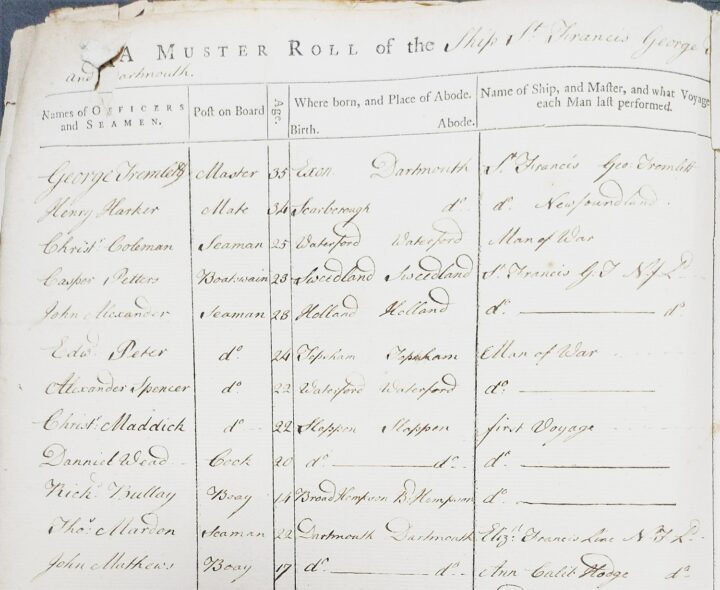 A MUSTER ROLL of the Ship St Francis George
and Dartmouth.
Names of OFFICERS and SEAMEN. Post on Board Age. Where born, and Place of Abode. Birth. Abode. Name of Ship, and Master, and what Voyage each Man last performed.
George Tremlett Master 35 Exon Dartmouth St Francis Geo Tremlett
Henry Harker Mate 34 Scarborough do do Newfoundland
Christr Coleman Seaman 25 Waterford Waterford Man of War
Casper Petters Boatswain 23 Sweedland Sweedland St Francis G.T N.f Ld
John Alexander Seaman 28 Holland Holland do do
Edwd Peter do 24 Topsham Topsham Man of War
Alexander Spencer do 22 Waterford Waterford do
Christr Maddick do 22 Sloppen Sloppen first Voyage
Danniel Wead Cook 20 do do do
Richd Bullay Boay 14 Broad Hempson Bd Hempson do
Thos Mardon Seaman 22 Dartmouth Dartmouth Elizh Francis Line N.F Ld
John Mathews Boay 17 do do Ann Calib Hodge do